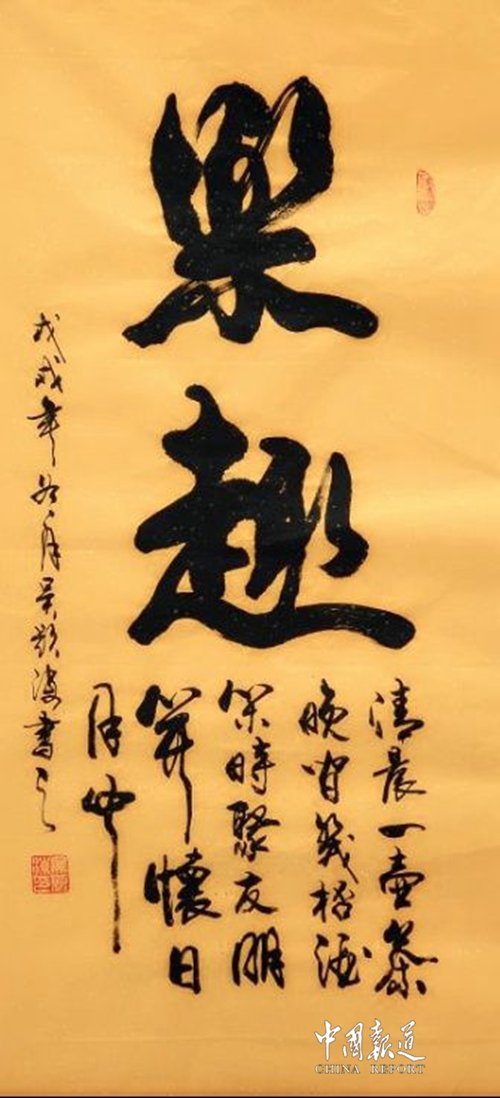 樂趣
清晨一壺茶
晚間幾杯酒
時聚友朋
懷日
月中
戊戌年 月 書之
中國報道
CHINA REPORT